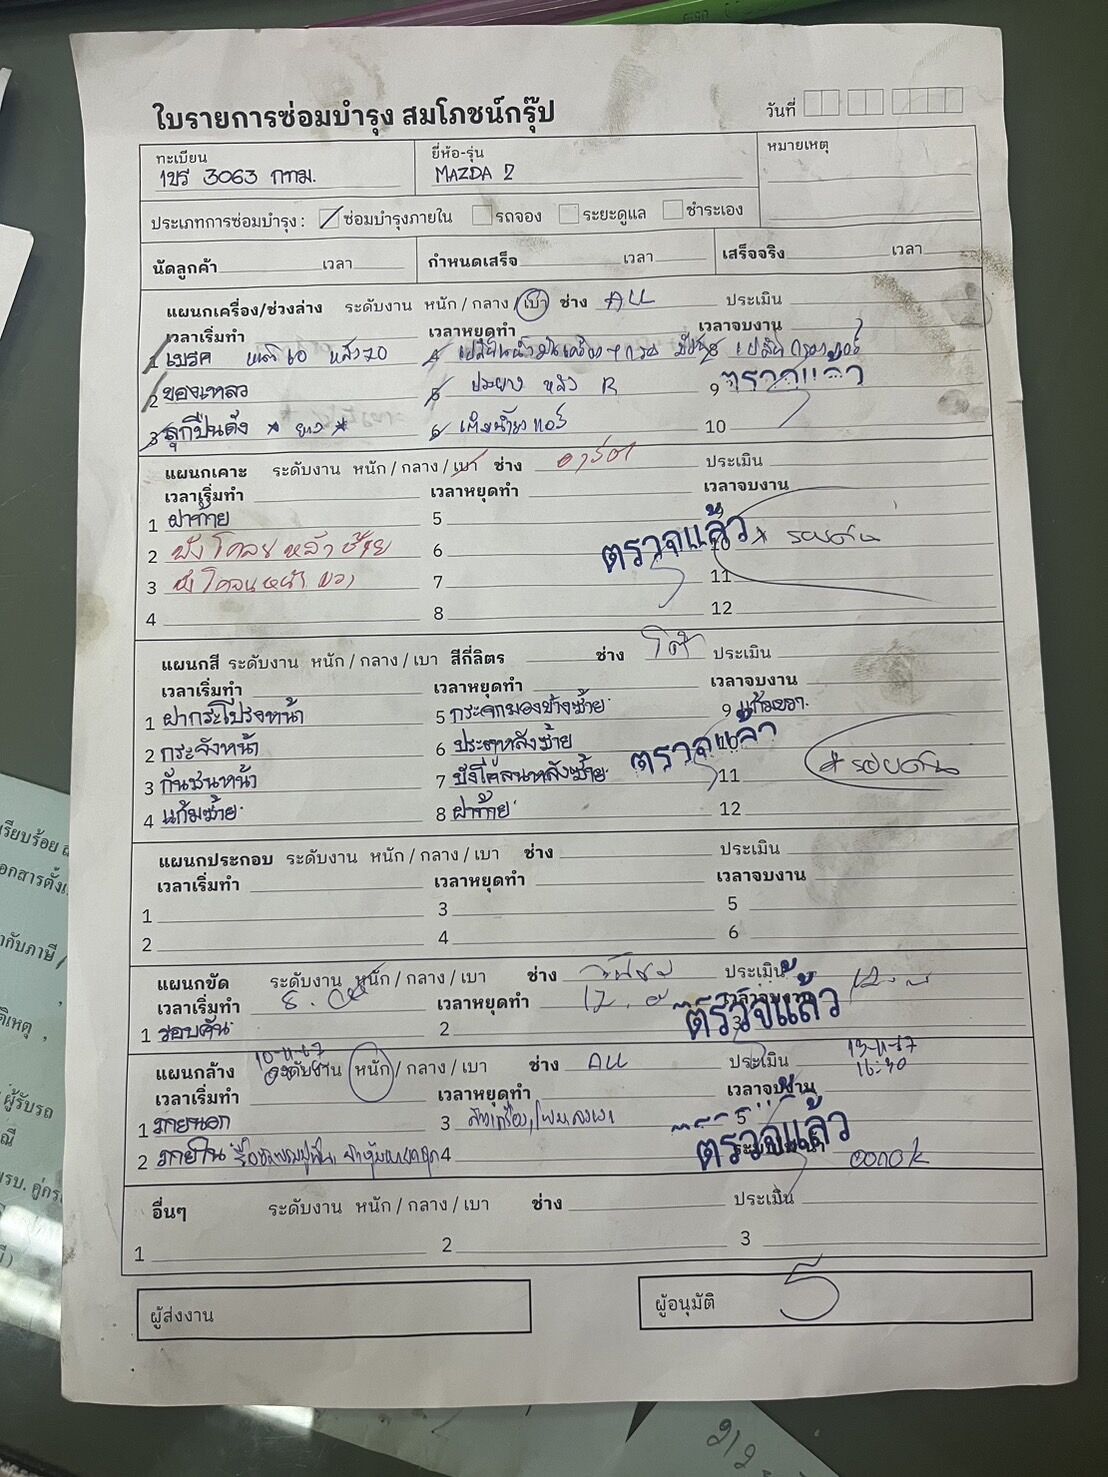 ใบรายการซ่อมบำรุง สมโภชน์กรุ๊ป
วันที่
ทะเบียน
3063 กทม.
ยี่ห้อ-รุ่น
MAZDA 2
หมายเหตุ
ประเภทการซ่อมบำรุง : ซ่อมบำรุงภายใน รถจอง ระยะดูแล ชำระเอง
นัดลูกค้า เวลา กำหนดเสร็จ เวลา เสร็จจริง เวลา
แผนกเครื่อง/ช่วงล่าง ระดับงาน หนัก / กลาง / เบา ช่าง ALL ประเมิน
เวลาเริ่มทำ เวลาหยุดทำ เวลาจบงาน
1 เบรค หลัง 20
2 ของเหลว
3 ลูกปืนดัง * ยาง *
4 เปลี่ยนน้ำมันเครื่อง + กรอง
5 ปะยาง หลัง R
6 เติมน้ำยาแอร์
8 เปลี่ยนกรองแอร์
9 ตรวจแล้ว
10
แผนกเคาะ ระดับงาน หนัก / กลาง / เบา ช่าง ประเมิน
เวลาเริ่มทำ เวลาหยุดทำ เวลาจบงาน
1 ฝาท้าย 5
2 บังโคลน หลัง ซ้าย 6 10 * รอบคัน
ตรวจแล้ว
3 บังโคลนหน้า ขวา 7 11
4 8 12
แผนกสี ระดับงาน หนัก / กลาง / เบา สีกี่ลิตร ช่าง โต้ ประเมิน
เวลาเริ่มทำ เวลาหยุดทำ เวลาจบงาน
1 ฝากระโปรงหน้า 5 กระจกมองข้างซ้าย 9 แก้มขวา
2 กระจังหน้า 6 ประตูหลังซ้าย 10
ตรวจแล้ว
3 กันชนหน้า 7 บังโคลนหลังซ้าย 11 * รอบคัน
4 แก้มซ้าย 8 ฝาท้าย 12
แผนกประกอบ ระดับงาน หนัก / กลาง / เบา ช่าง ประเมิน
เวลาเริ่มทำ เวลาหยุดทำ เวลาจบงาน
1 3 5
2 4 6
แผนกขัด ระดับงาน หนัก / กลาง / เบา ช่าง ประเมิน
เวลาเริ่มทำ 8.00 เวลาหยุดทำ เวลาจบงาน
1 รอบคัน 2 3
ตรวจแล้ว
10-11-67 13-11-67
แผนกล้าง ระดับงาน หนัก / กลาง / เบา ช่าง ALL ประเมิน 16:30
เวลาเริ่มทำ เวลาหยุดทำ เวลาจบงาน
1 ภายนอก 3 5
ตรวจแล้ว
2 ภายใน 4
อื่นๆ ระดับงาน หนัก / กลาง / เบา ช่าง ประเมิน
1 2 3
ผู้ส่งงาน ผู้อนุมัติ